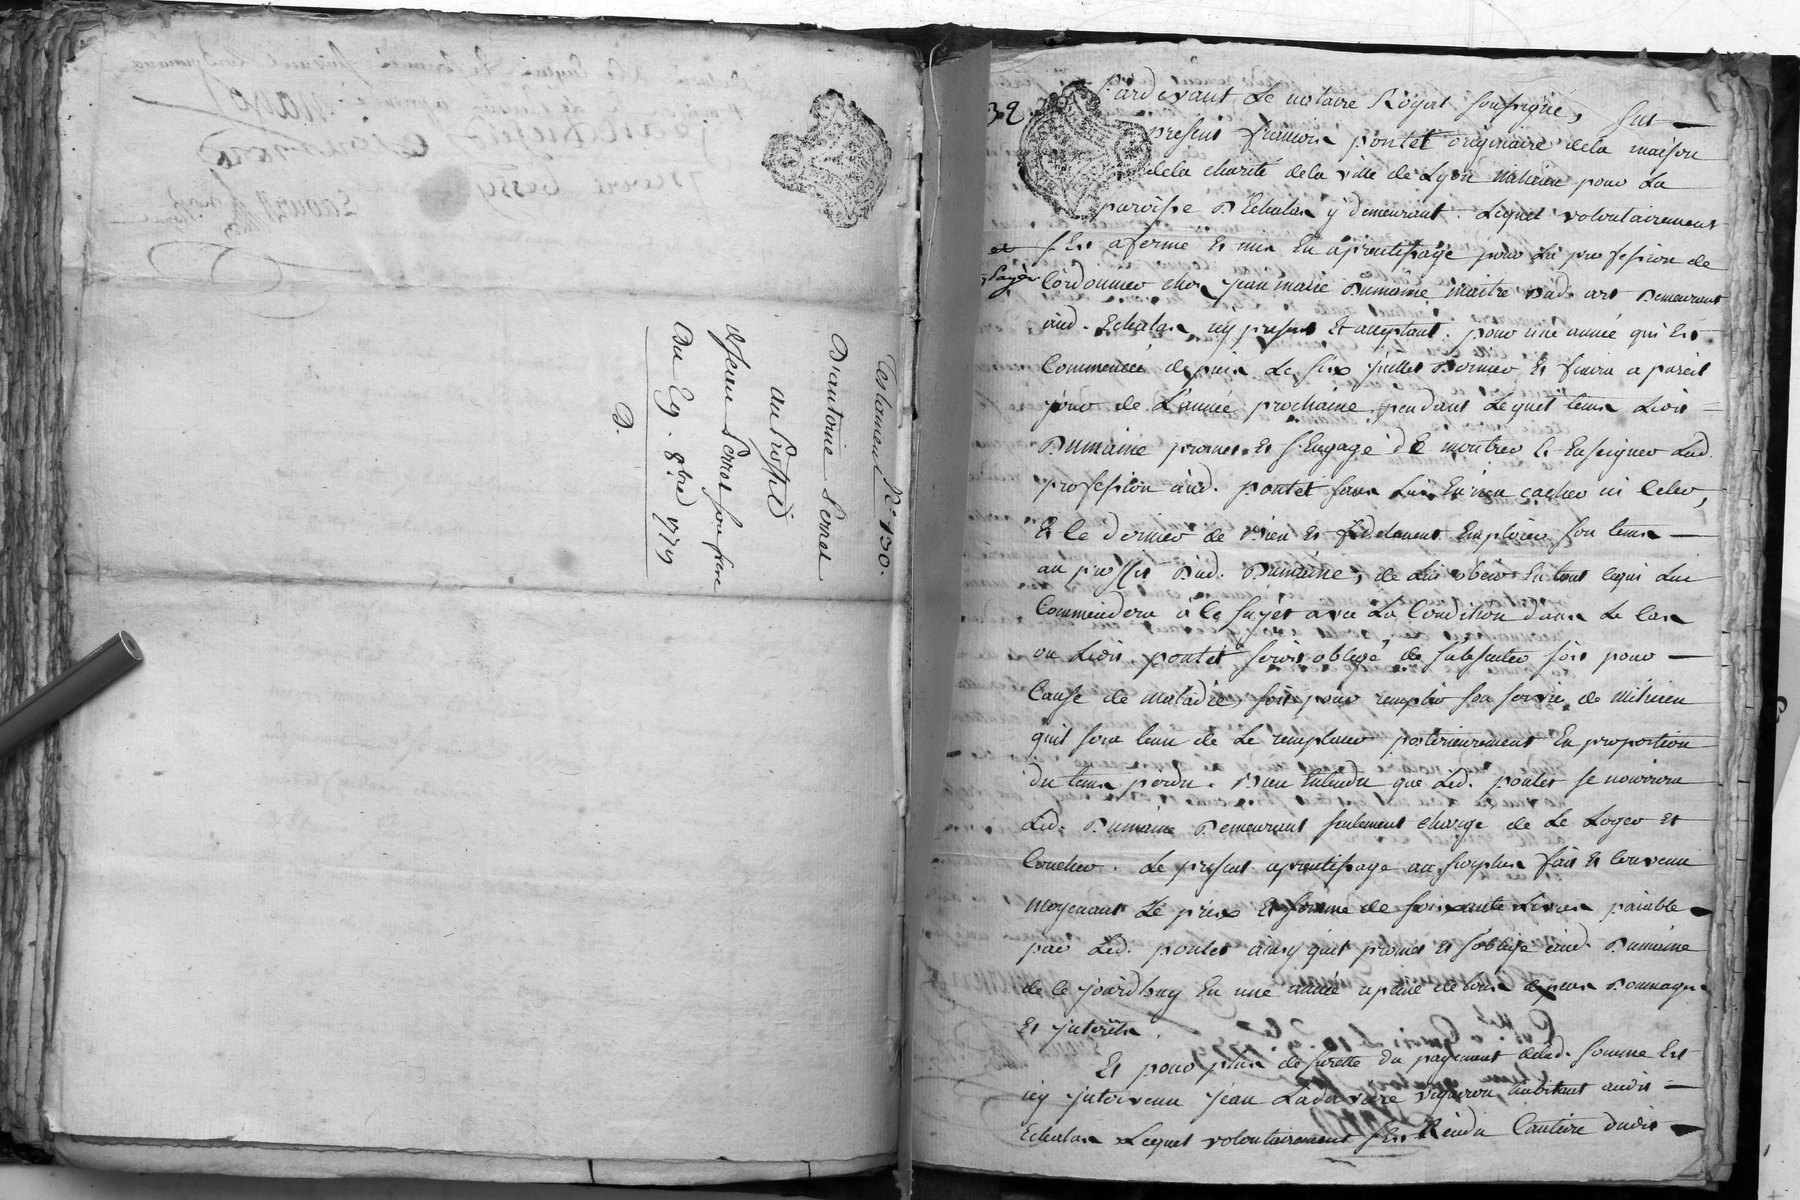 Testament N° 130.
D'antoine Perret
au Proffit
de Jean Perret son frere
Du 29. 8bre 1779
D.
32
Pardevant Le notaire Royal soussigné, fut
present francois pontet originaire dela maison
dela charité dela ville de Lyon milicien pour La
paroisse D'Echalas y demeurant. Lequel volontairement
s'Est afermé Et mis En aprentissage pour La profession de
Cordonnier chez jean marie Dumaine maitre Dud. art Demeurant
aud. Echalas icy present Et acceptant. pour une année qui Est
Commencée depuis Le six juillet Dernier Et finira a pareil
jour de L'année prochaine, pendant Lequel tems Ledit
Dumaine promet Et s'Engage de montrer Et Enseigner Lad.
profession aud. pontet sans Lui En rien cacher ni Celer,
Et le dernier de bien Et fidelement Emploier son tems
au proffit Dud. Dumaine, de Lui obeir En tout cequi Lui
Commendera à Ce sujet avec La Condition dans Le Cas
ou Ledit pontet seroit obligé de s'absenter soit pour
Cause de maladie, soit pour remplir son service de milicien
quil sera tenu de Le remplacer posterieurement En proportion
du tems perdu. Bien Entendu que Led. pontet se nourrira
Led. Dumaine Demeurant seulement chargé de Le Loger Et
Coucher. Le present aprentissage au surplus fait Et Convenu
moyenant Le prix Et somme de soixante Livres paiable
par Led. pontet ainsy quil promet Et s'oblige aud. Dumaine
de Ce jourdhuy En une année a peine de tous depens Dommages
Et jnterêts.
Et pour plus de surette du payement delad. somme Est
icy jntervenu jean vigneron habitant audit
Echalas Lequel volontairement s'Est Rendu Caution dudit